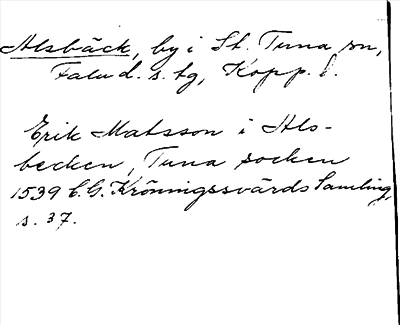 Alsbäck, by i St. Tuna sn,
Falu d. s. tg, Kopp. l.
Erik Matsson i Als-
becken, Tuna socken
1539 C. G. Kröningssvärds Samling,
s. 37.